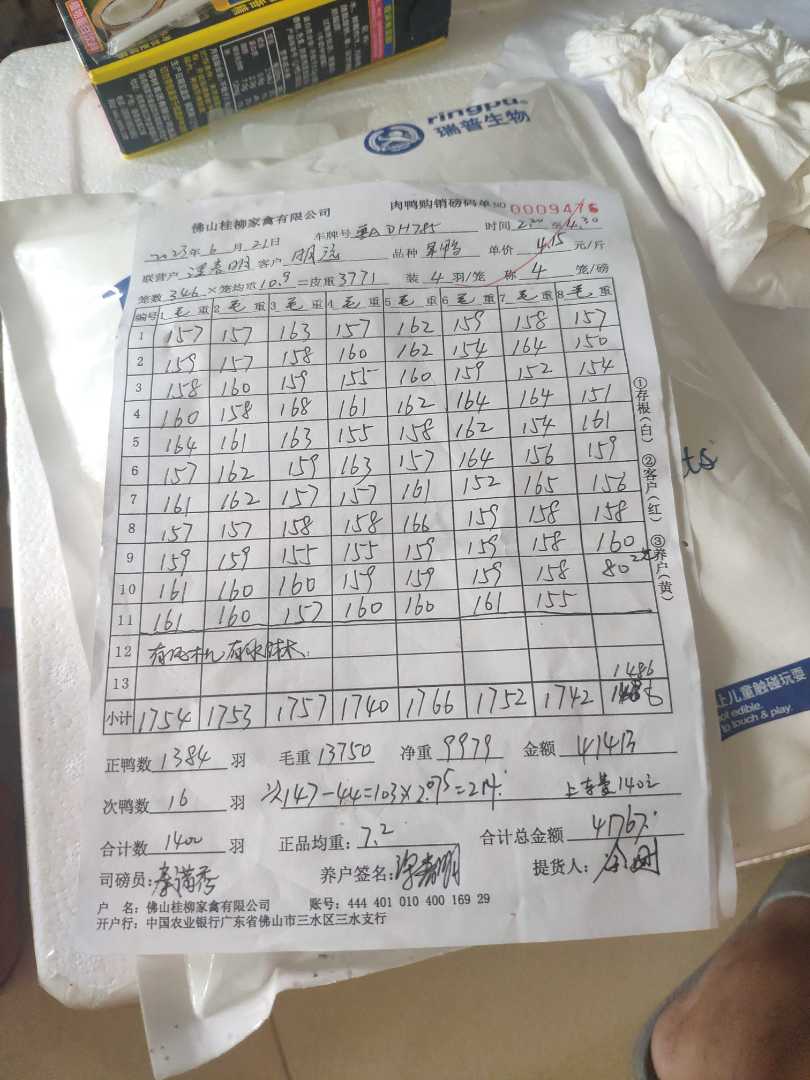 ringpu®
瑞普生物
佛山桂柳家禽有限公司 肉鸭购销磅码单 NO 0009476
2023年6月21日 车牌号 粤A DH785 时间 2:30 至 4:30
联营户 客户 明记 品种 单价 4.15 元/斤
笼数 346 × 笼均重 10.9 = 皮重 3771 装 4 羽/笼 称 4 笼/磅
编号 1 毛重 2 毛重 3 毛重 4 毛重 5 毛重 6 毛重 7 毛重 8 毛重
1 157 157 163 157 162 159 158 157
2 159 157 158 160 162 154 164 150
3 158 160 159 155 160 159 152 154
4 160 158 168 161 162 164 164 151
5 164 161 163 155 158 162 154 161
6 157 162 159 163 157 164 156 159
7 161 162 157 157 161 152 165 156
8 157 157 158 158 166 159 158 158
9 159 159 155 155 159 159 158 160
10 161 160 160 159 159 159 158 80 2笼
11 161 160 157 160 160 161 155
12
13 1486
小计 1754 1753 1757 1740 1766 1752 1742
①存根(白) ②客户(红) ③养户(黄)
正鸭数 1384 羽 毛重 13750 净重 9979 金额 41413
次鸭数 16 羽 次147-44=103×2.075=214. 上车费140元
合计数 1400 羽 正品均重: 7.2 合计总金额 41767.
司磅员: 养户签名: 提货人:
户 名: 佛山桂柳家禽有限公司 账号: 444 401 010 400 169 29
开户行: 中国农业银行广东省佛山市三水区三水支行
上儿童触碰玩耍
ot edible.
to touch & play